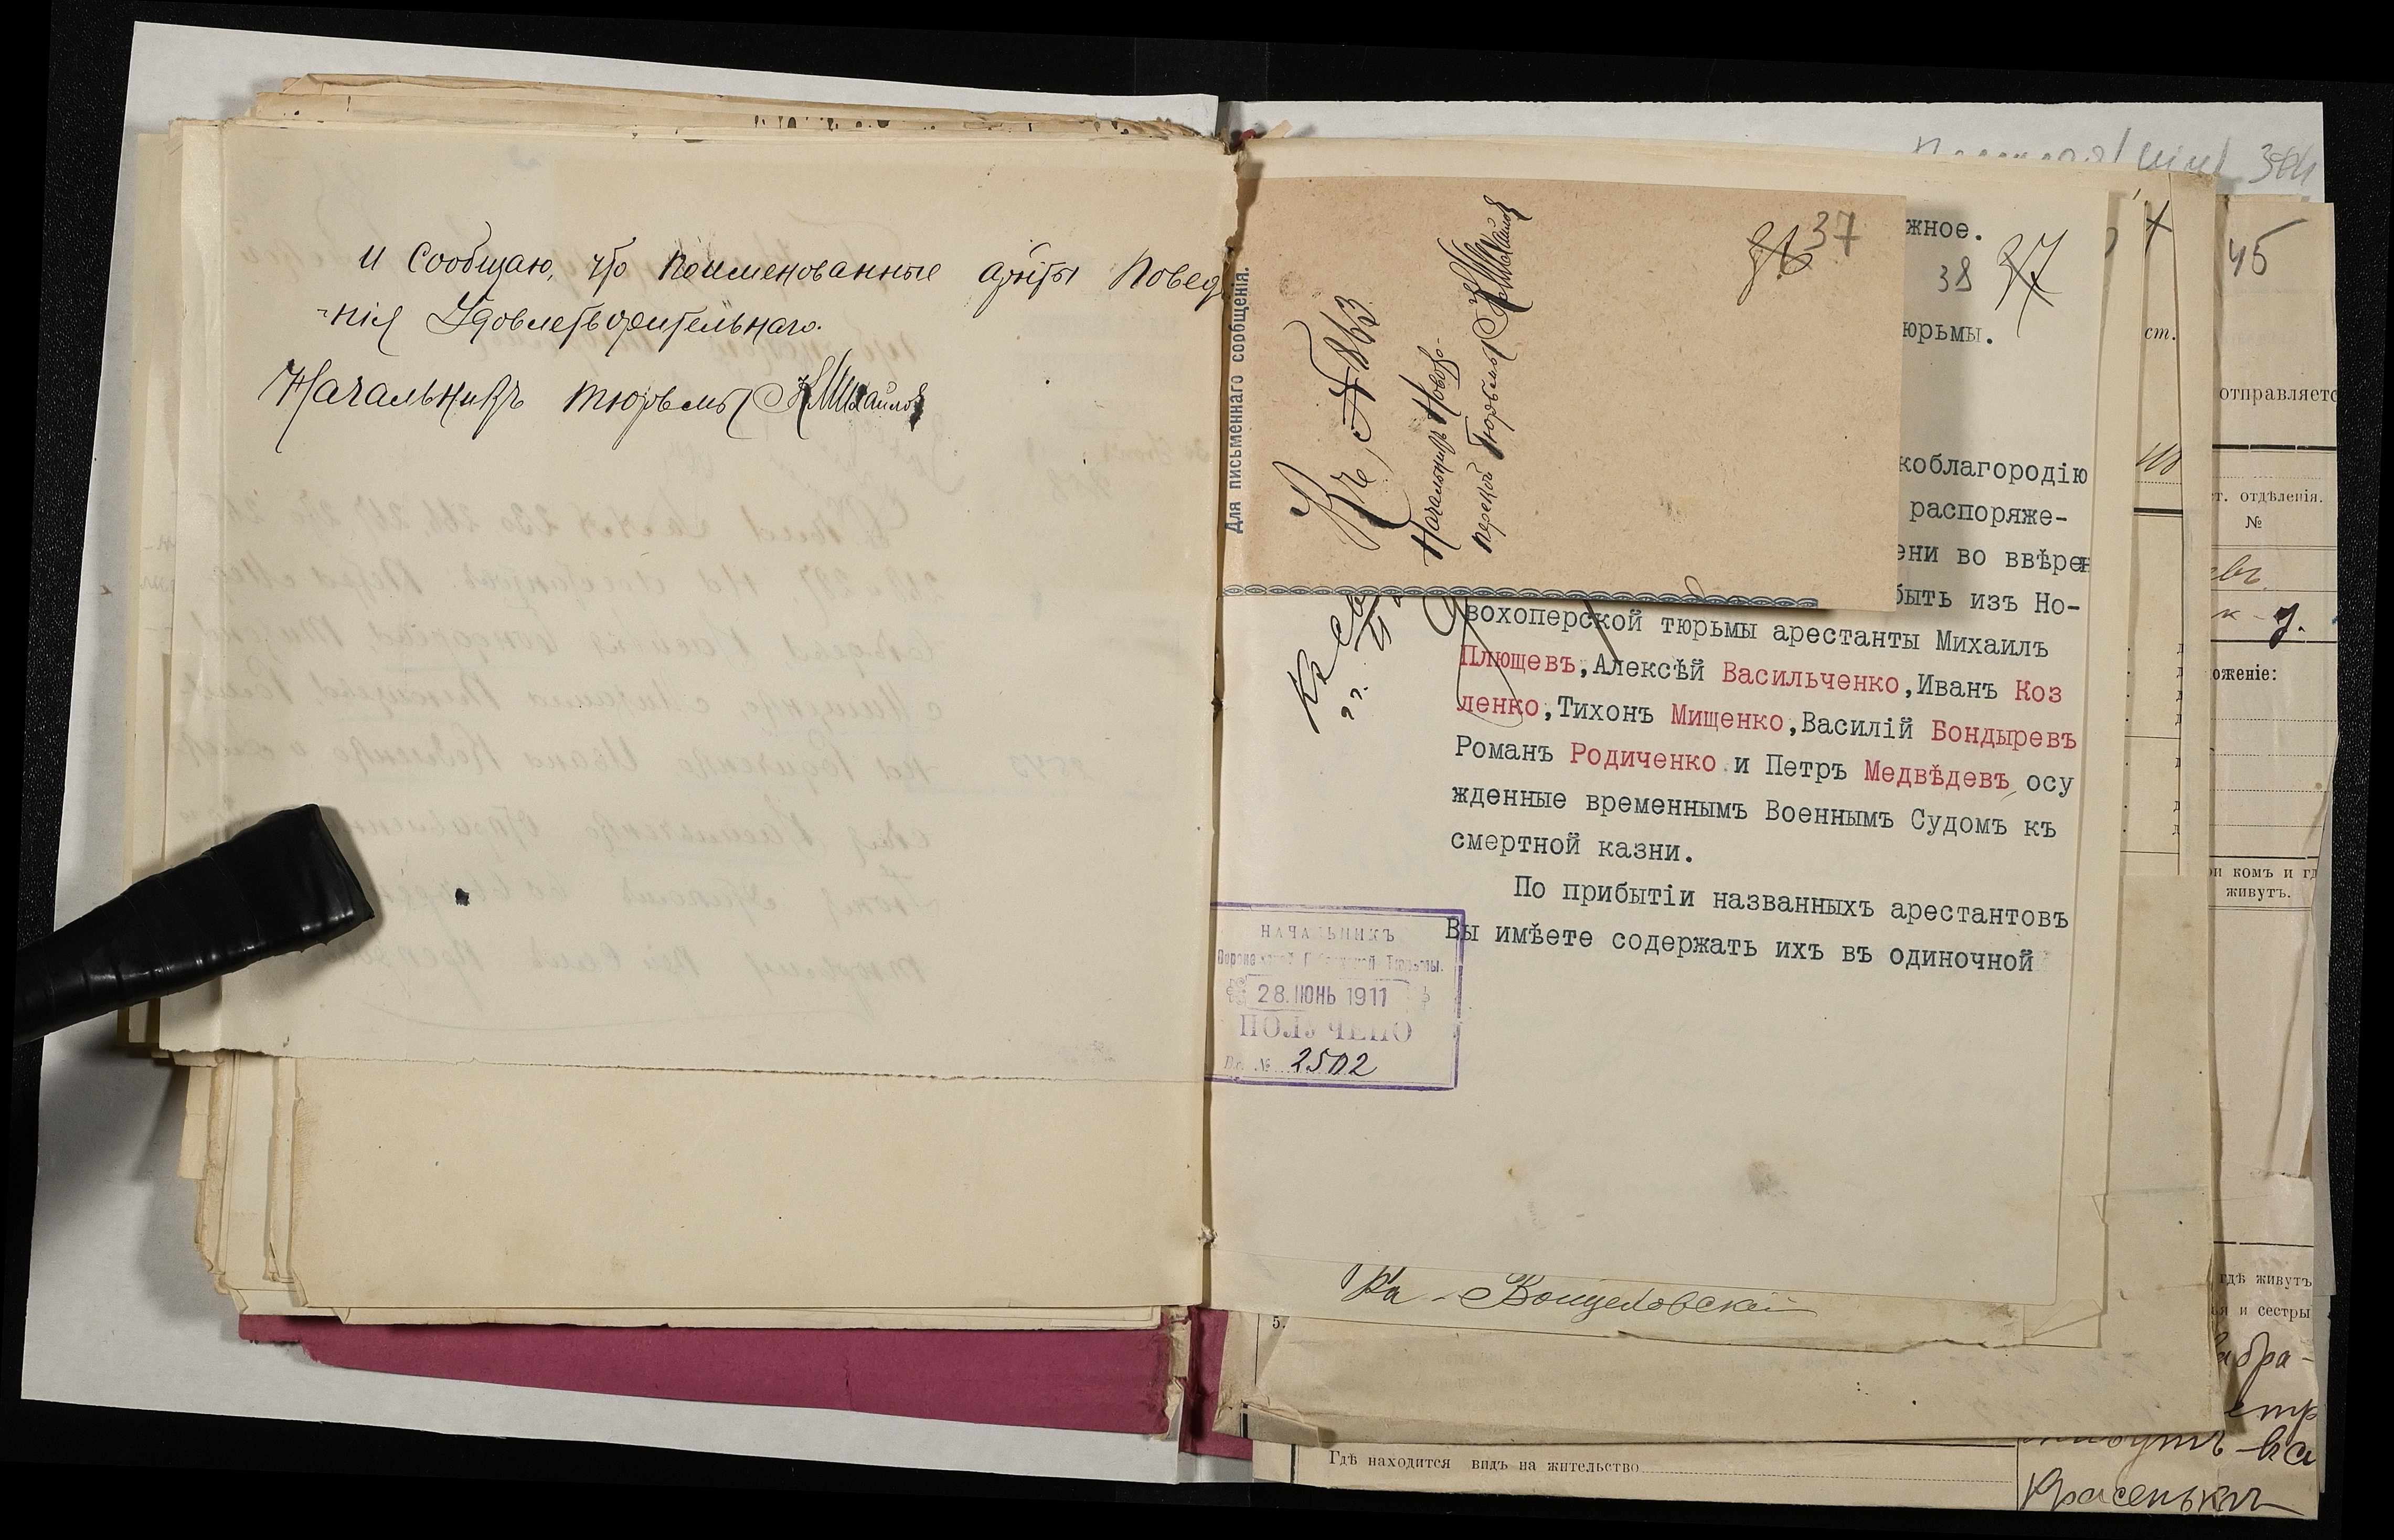 и сообщаю, что поименованные ар‑ты повед
-нія Удовлетворительнаго.
Начальникъ тюрьмы КМихайлов
Для письменнаго сообщенія.
Къ № 863
Начальникъ Новохо-
перской Тюрьмы КМихайлов
37
жное.
38 37
юрьмы.
коблагородію
распоряже-
ени во ввѣрен
быть изъ Но-
вохоперской тюрьмы арестанты Михаилъ
Плющевъ,Алексѣй Васильченко,Иванъ Коз
ленко,Тихонъ Мищенко,Василій Бондыревъ
Романъ Родиченко и Петръ Медвѣдевъ осу
жденные временнымъ Военнымъ Судомъ къ
смертной казни.
По прибытіи названныхъ арестантовъ
Вы имѣете содержать ихъ въ одиночной
НАЧАЛЬНИКЪ
Воронежской Губернской Тюрьмы.
28. ІЮНЬ 1911
ПОЛУЧЕНО
Вх. № 2502
5.
Гдѣ находится видъ на жительство
45
ст.
отправляетс
ст. отдѣленія.
№
евъ.
к - д.
ложеніе:
ри комъ и гд
живутъ.
гдѣ живутъ
ья и сестры
Красенькимъ